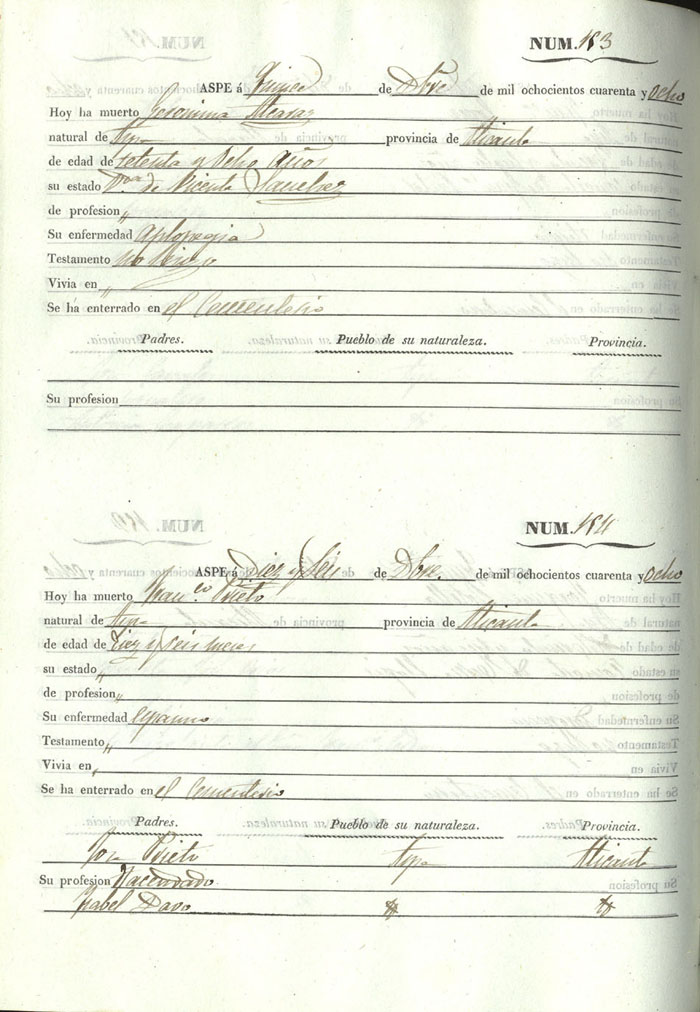 NUM. 183
ASPE á Quince de Dbre de mil ochocientos cuarenta y ocho
Hoy ha muerto Geronima Alcaraz
natural de Aspe provincia de Alicante
de edad de setenta y Ocho años
su estado Vda de Vicente Sanchez
de profesion "
Su enfermedad Aplopegia
Testamento no hizo
Vivia en "
Se ha enterrado en el Cementerio
Padres. Pueblo de su naturaleza. Provincia.
Su profesion
NUM. 184
ASPE á Diez y Seis de Dbre. de mil ochocientos cuarenta y ocho
Hoy ha muerto Franco Prieto
natural de Aspe provincia de Alicante
de edad de Diez y seis meses
su estado "
de profesion "
Su enfermedad espasmo
Testamento "
Vivia en "
Se ha enterrado en el Cementerio
Padres. Pueblo de su naturaleza. Provincia.
Prieto Aspe Alicante
Su profesion Hacendado
Isabel Davo